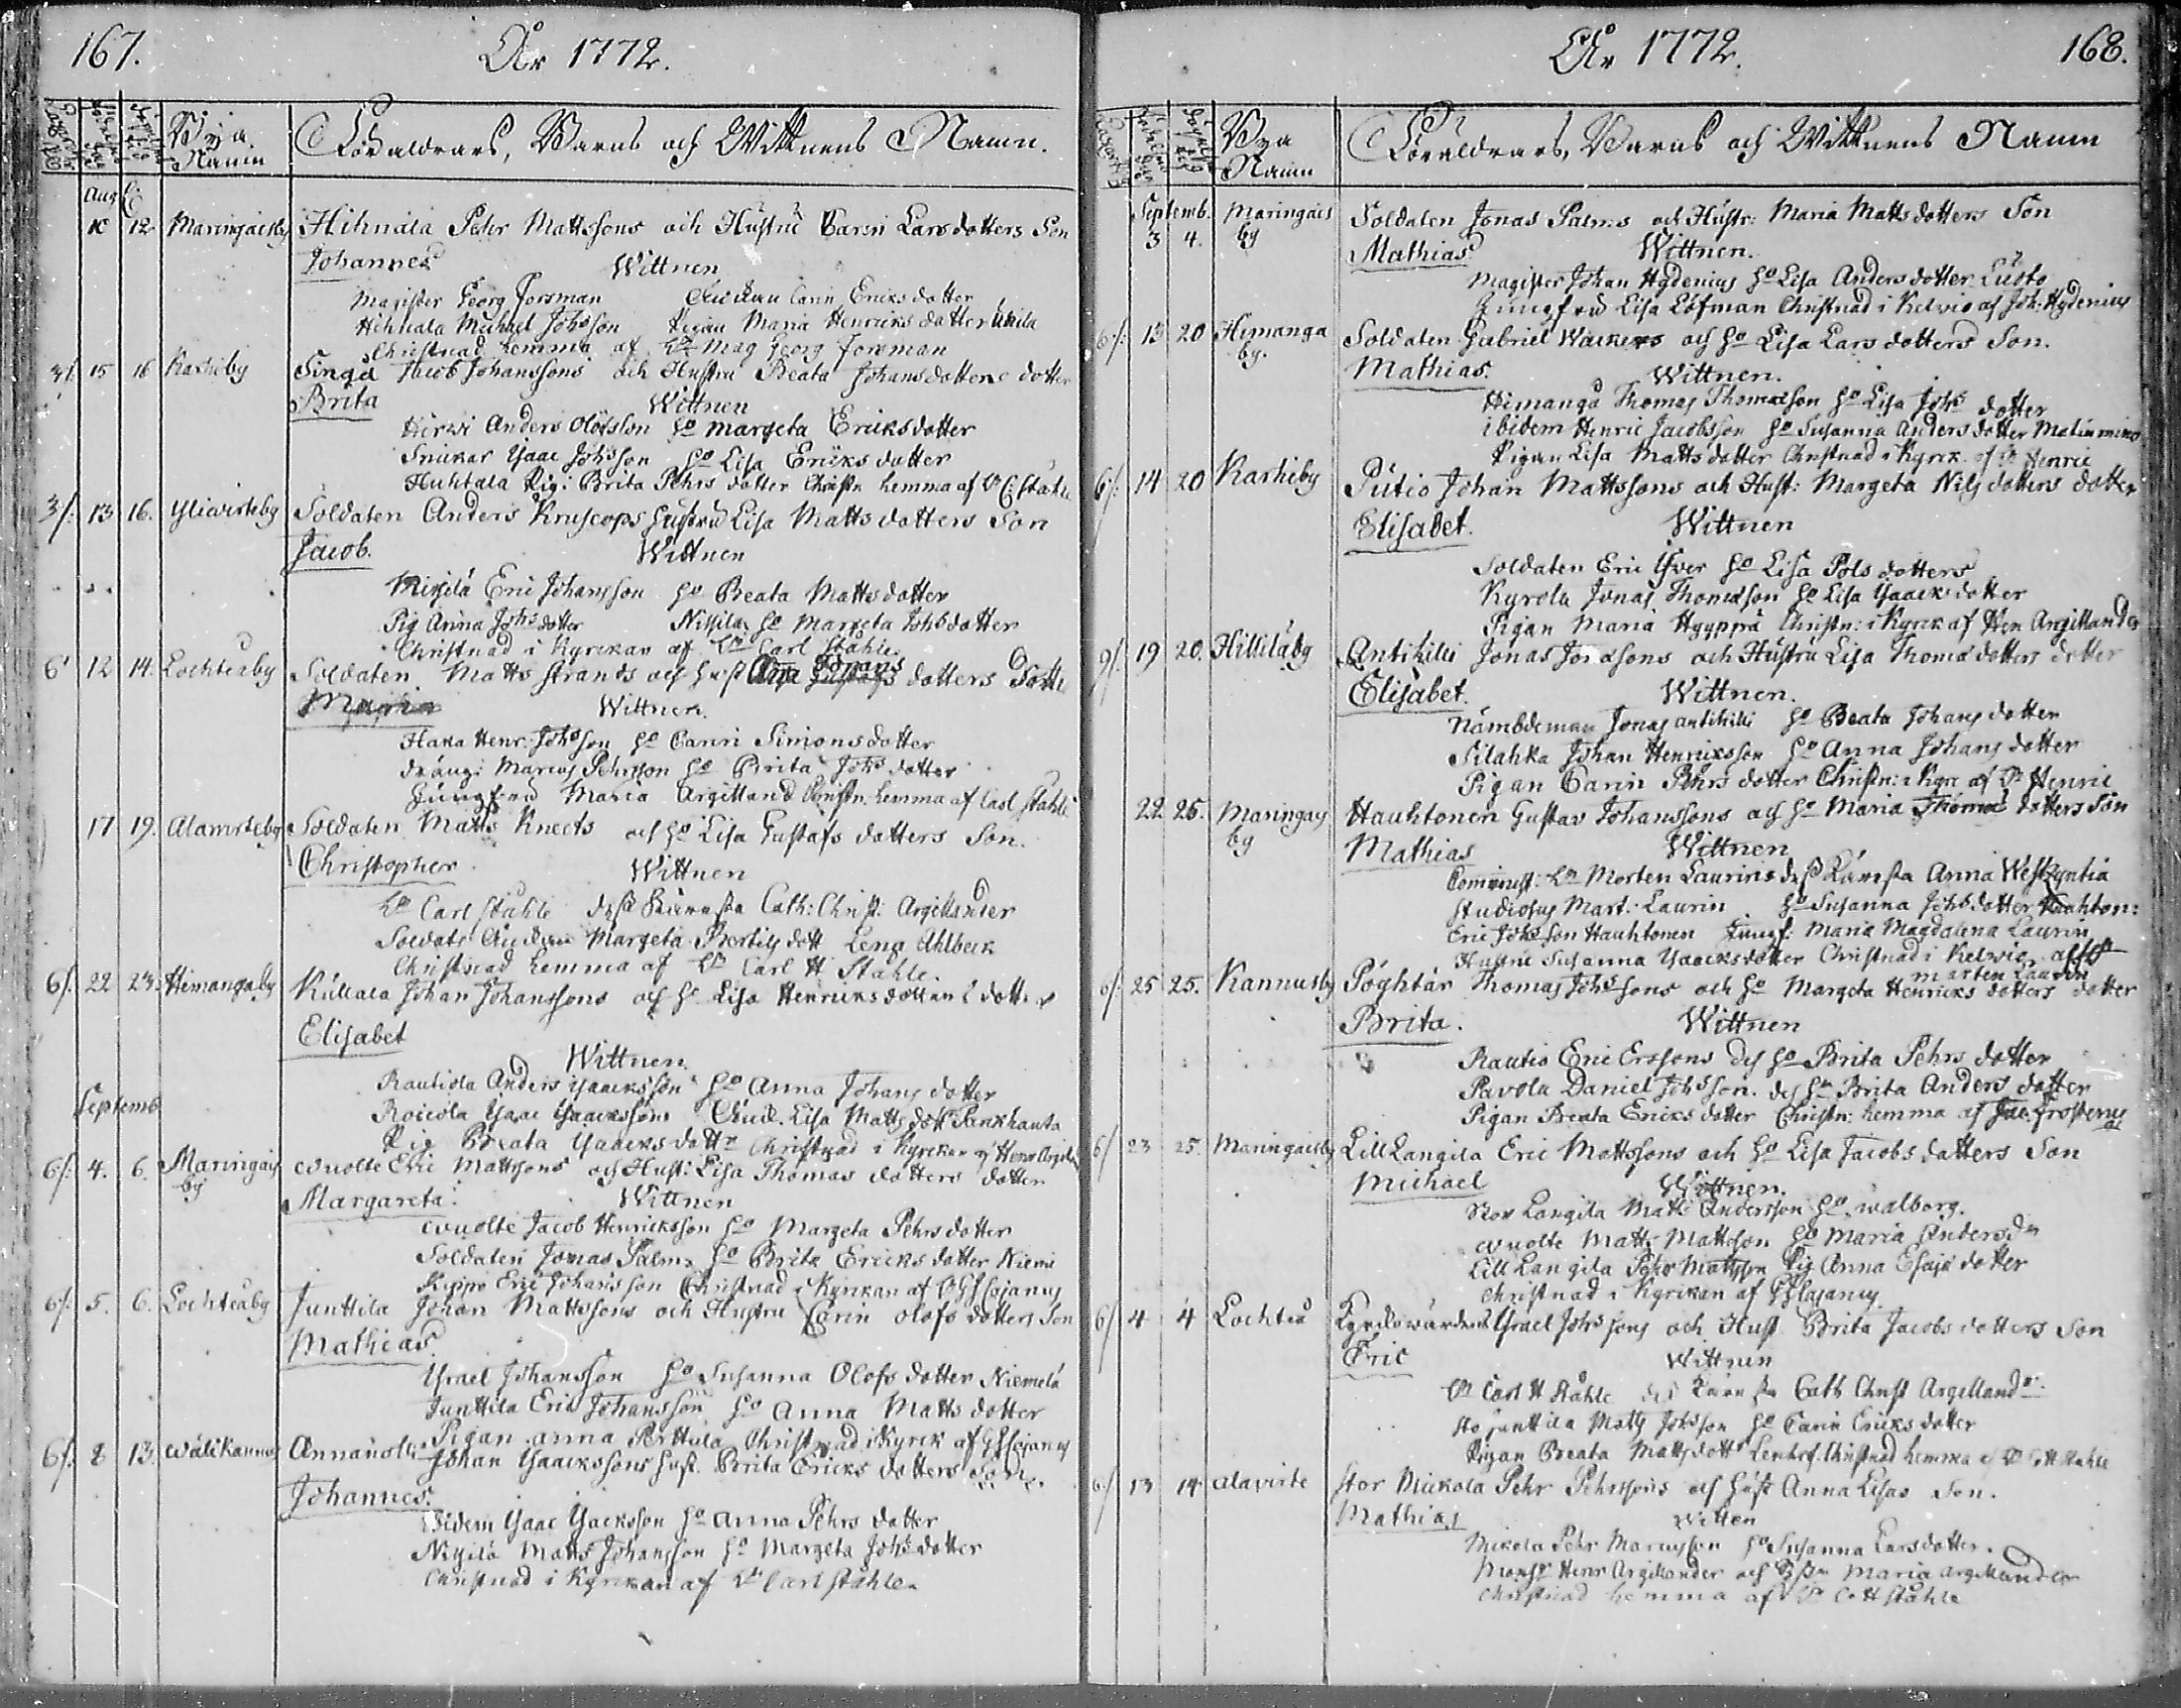 167.
År 1772.
Bya Namn
Föräldrars, Barns och Wittnens Namn.
Aug
10 12 Maringaisby Hihnala Pehr Mattssons och Hustru Carin Larsdotters Son
Johannes Wittnen
Magister Georg Forsman Enckan Carin Ericksdotter
Hihnala Michael Johsson Pigan Maria Henricksdotter
Christnad hemma af Hr Mag Georg Forsman
3/: 15 16 Karhiby Singå Jacob Johanssons och Hustru Beata Johansdotters dotter
Brita Wittnen
Hirwi Anders Olofsson Ho Margeta Ericksdotter
Snickar Ysaac Johsson Ho Lisa Ericks dotter
Huhtala Pig: Brita Pehrs dotter Christn hemma af Hr C: Ståhle
3/: 13 16. Yliwirteby Soldaten Anders Kruscops hustru Lisa Matts dotters Son
Jacob. Wittnen
Eric Johansson Ho Beata Mattsdotter
Pig Anna Johs dotter Ho Margeta Johsdotter
Christnad i Kyrckan af Hr Carl Ståhle
6/ 12 14. Lochteåby Soldaten Matts Strands och Hust dotters Dotter
Maria Wittnen.
Haka Henr: Johsson Ho Carin Simonsdotter
Dräng: Marcus Pehrsson Ho Brita Johs dotter
Jungfru Maria Argilland Christn. hemma af Carl Ståhle
17 19. Alawirteby Soldaten Matts Knects och Ho Lisa Gustafs dotters Son.
Christopher Wittnen
Hr Carl Ståhle dess Kiäresta Cath: Christ: Argillander
Soldats Enckan Margeta Bertils dott Lena Ahlbeck
Christnad hemma af Hr Carl H Ståhle.
6/: 22 23: Himangaby Killala Johan Johanssons och Ho Lisa Henricksdotters dotter
Elisabet
Wittnen
Rautiola Anders Ysaacksson Ho Anna Johans dotter
Septemb
Roicola Ysaac Ysaacksson Enck. Lisa Matts dott Pankhauta
Pig Breata Ysaacks dottr Christnad i Kyrckan af Henr Argill
6/: 4. 6. Maringais by Wuolte Eric Mattssons och Hust: Lisa Thomas dotters dotter
Margareta: Wittnen
Wuolte Jacob Henricksson Ho Margeta Pehrsdotter
Soldaten Jonas Palm Ho Brita Ericks dotter Niemi
Eric Johansson Christnad i Kyrckan af
6/: 5. 6. Lochteåby Junttila Johan Mattssons och Hustru Carin Olofs dotters Son
Mathias.
Ysrael Johansson Ho Susanna Olofs dotter Niemelä
Junttila Eric Johansson Ho Anna Matts dotter
Pigan Anna Perttula Christnad i Kyrck af
6/: 8 13. Wälikannus Johan Ysaackssons Hust. Brita Ericks dotters Son.
Johannes.
Ibidem Ysaac Ysacksson Ho Anna Pehrs dotter
Matts Johansson Ho Margeta Johsdotter
Christnad i Kyrckan af Hr Carl Ståhle.
År 1772.
168.
Bya Namn
Föräldrars, Barns och Wittnens Namn
Septemb.
3 4. Maringais by Soldaten Jonas Palms och Hustr: Maria Matts dotters Son
Mathias Wittnen.
Magister Johan Hydenius Ho Lisa Andersdotter
Jungfru Lisa Löfman Christnad i Kelwio af Joh: Hydenius
6/: 13 20 Himanga by. Soldaten Gabriel Wackers och Ho Lisa Lars dotters Son.
Mathias. Wittnen.
Himanga Thomas Thomasson Ho Lisa Johs dotter
ibidem Henric Jacobsson Ho Susanna Anders dotter
Pigan Lisa Matts dotter Christnad i Kyrck.
6/: 14 20 Karhiby Putio Johan Mattssons och Hust: Margeta Nils dotters dotter
Elisabet. Wittnen
Soldaten Eric Ho Lisa Pols dotters
Kyrola Jonas Thomasson Ho Lisa Ysaacks dotter
Pigan Maria Hyyppä Christn: i Kyrck af Hen Argillander
9/: 19 20. Hillilåby Antikilli Jonas Jonassons och Hustru Lisa Thomas dotters dotter
Elisabet. Wittnen.
Nämbdeman Jonas Antikilli Ho Beata Johans dotter
Silahka Johan Henricksson Ho Anna Johans dotter
Pigan Carin Pehrs dotter Christn: i Kyrc af Hr Henric
22 25. Maringais by Hauhtonen Gustav Johanssons och Ho Maria Thomas dotters Son
Mathias Wittnen
Comminist: Hr Morten Laurins dess Käresta Anna Westzyntia
Studiosus Mart: Laurin Ho Susanna Johsdotter
Eric Johsson Hauhtonen Jungf: Maria Magdalena Laurin
Hustru Susanna Ysaacksdotter Christnad i Kelwio af
Mårten Laurin
6/: 25 25. Kannusby Pöyhtär Thomas Johssons och Ho Margeta Henricks dotters dotter
Brita. Wittnen
Rautio Eric Erssons des Ho Brita Pehrs dotter
Pavola Daniel Johsson. des Ho Brita Anders dotter
Pigan Breata Ericks dotter Christn: hemma af Jac: Frosterus
6/ 23 25. Maringaisby Lill Langila Eric Mattssons och Ho Lisa Jacobs dotters Son
Michael Wittnen.
Stor Langila Matts Andersson Ho Walborg.
Wuolte Matts Mattsson Ho Maria Anders dr
Lill Langila Pehr Mattsson Pig Anna Esajs dotter
Christnad i Kyrckan af
6/ 4 4 Lochteå Kyrckowärdens Ysrael Johssons och Hust Brita Jacobs dotters Son
Eric Wittnen
Hr Carl H Ståhle des Käresta Cath Christ Argellandr.
Junttila Matts Johsson Ho Carin Ericks dotter
Pigan Breata Mattsdottr Christnad hemma af Hr C H Ståhle
6/ 13 14 Alavirte Stor Mickola Pehr Pehrssons och Hust Anna Lisas Son.
Mathias Witten
Mikola Pehr Marcusson Ho Susanna Larsdotter.
Monsr Henr Argillander och Maria Argillander
Christnad hemma af Hr C H Ståhle